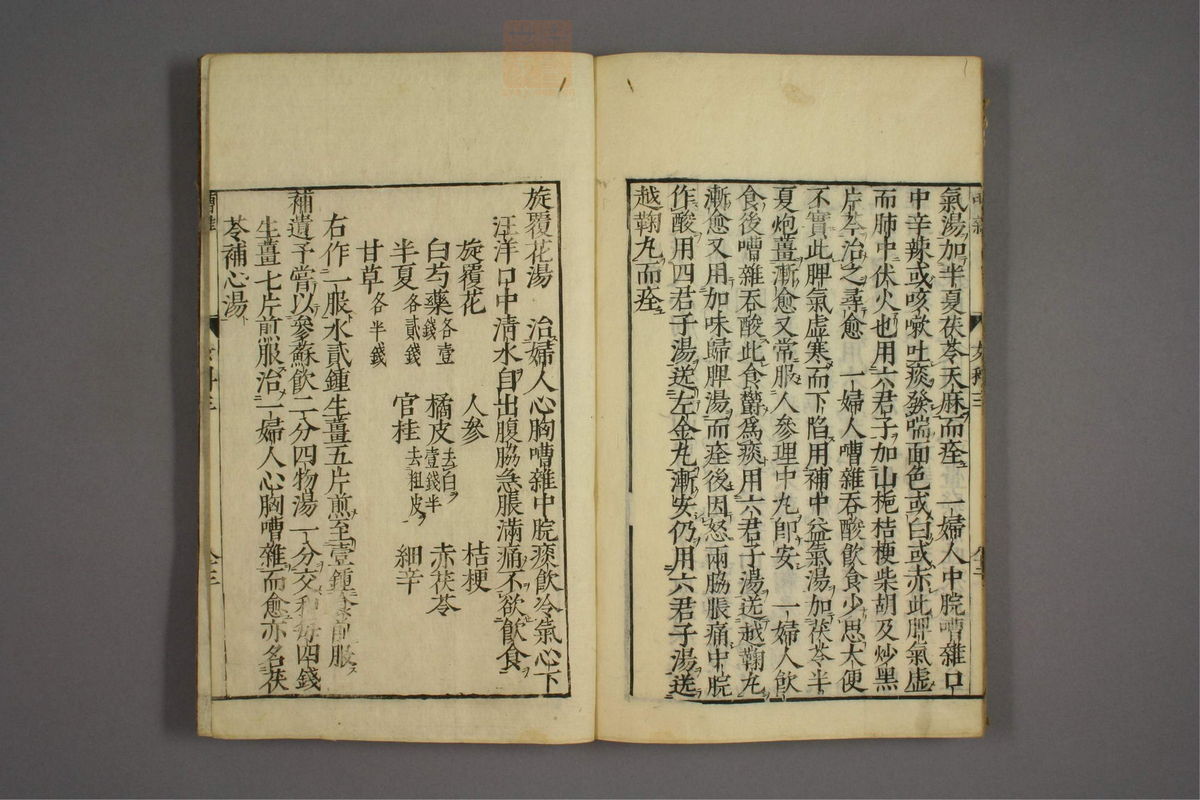 氣湯加半夏茯苓天麻而痊 一婦人中脘嘈雜口
中辛辣或咳嗽吐痰發喘面色或白或赤此脾氣虛
而肺中伏火也用六君子加山梔桔梗柴胡及炒黑
片芩治之尋愈 一婦人嘈雜吞酸飲食少思大便
不實此脾氣虛寒而下陷用補中益氣湯加茯苓半
夏炮薑漸愈又常服人參理中丸即安 一婦人飲
食後嘈雜吞酸此食欝爲痰用六君子湯送越鞠丸
漸愈又用加味歸脾湯而痊後因怒兩脇脹痛中脘
作酸用四君子湯送左金丸漸安仍用六君子湯送
越鞠丸而痊
旋覆花湯 治婦人心胸嘈雜中脘痰飲冷氣心下
汪洋口中清水自出腹脇急脹滿痛不欲飲食
旋覆花 人參 桔梗
白芍藥各壹錢 橘皮去白壹錢半 赤茯苓
半夏各貳錢 官桂去粗皮 細辛
甘草各半錢
右作一服水貳鍾生薑五片煎至壹鍾食前服
補遺予嘗以參蘇飲二分四物湯一分交和每四錢
生薑七片煎服治一婦人心胸嘈雜而愈亦名茯
苓補心湯